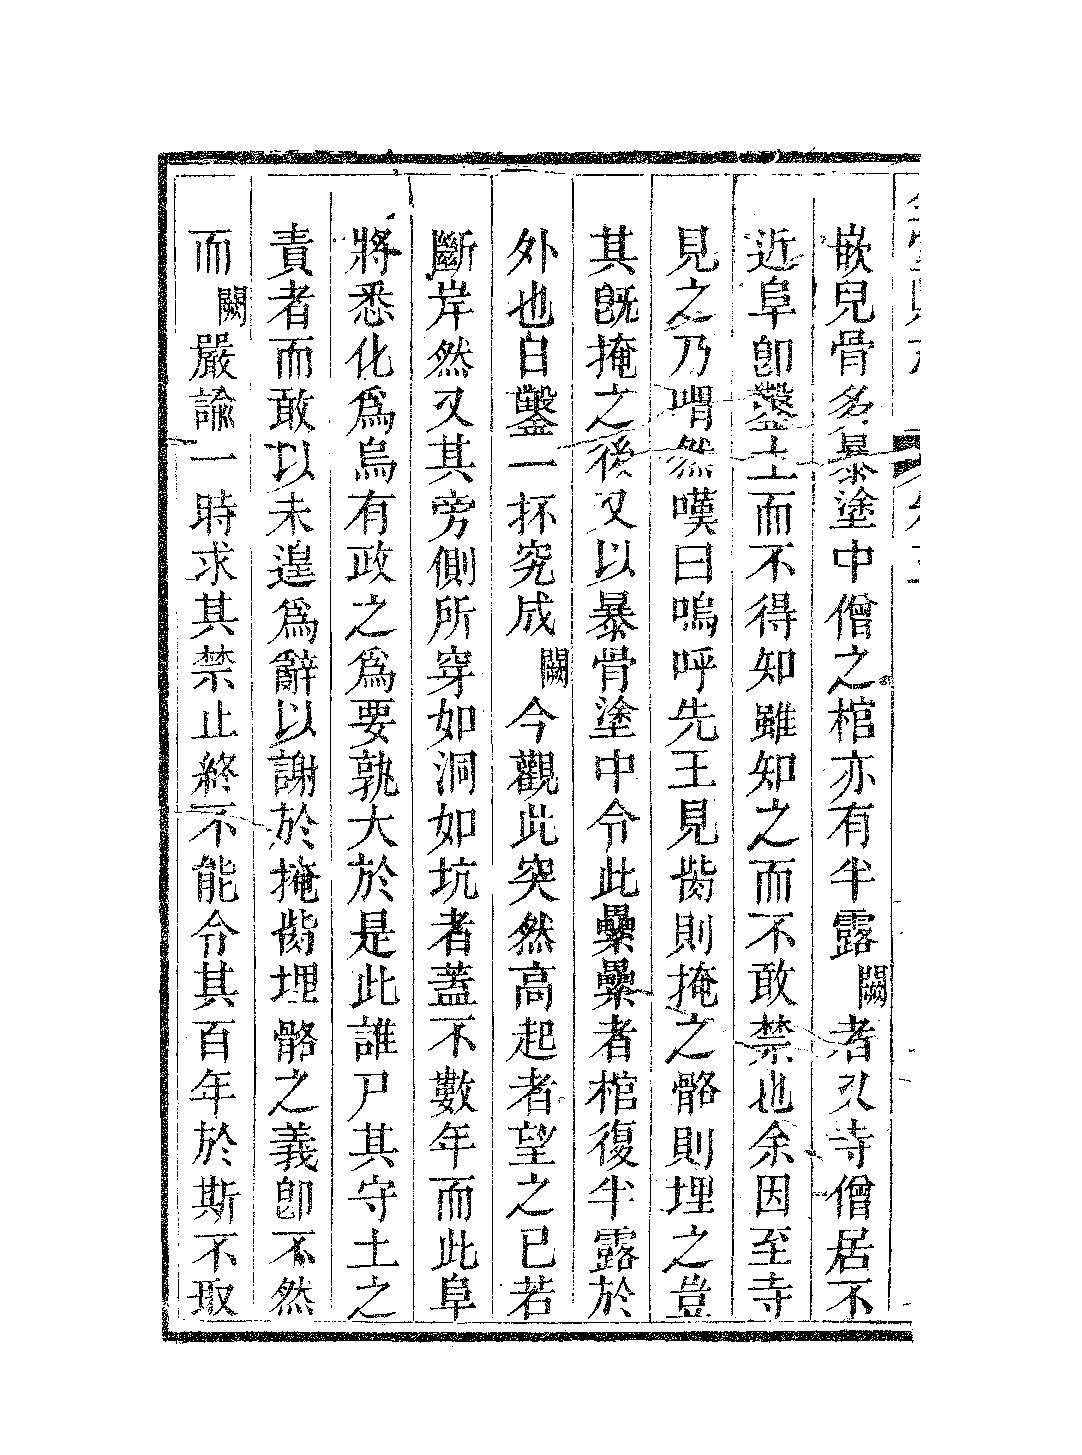 嵌兒骨多暴塗中僧之棺亦有半露闕者又寺僧居不
近阜卽鑿土而不得知雖知之而不敢禁也余因至寺
見之乃喟然嘆曰嗚呼先王見胔則掩之骼則埋之豈
其旣掩之後又以暴骨塗中令此纍纍者棺復半露於
外也日鑿一抔究成闕今觀此突然高起者望之已若
斷岸然又其旁側所穿如洞如坑者蓋不數年而此阜
將悉化爲烏有政之爲要孰大於是此誰尸其守土之
責者而敢以未遑爲辭以謝於掩胔埋骼之義卽不然
而闕嚴諭一時求其禁止終不能令其百年於斯不取